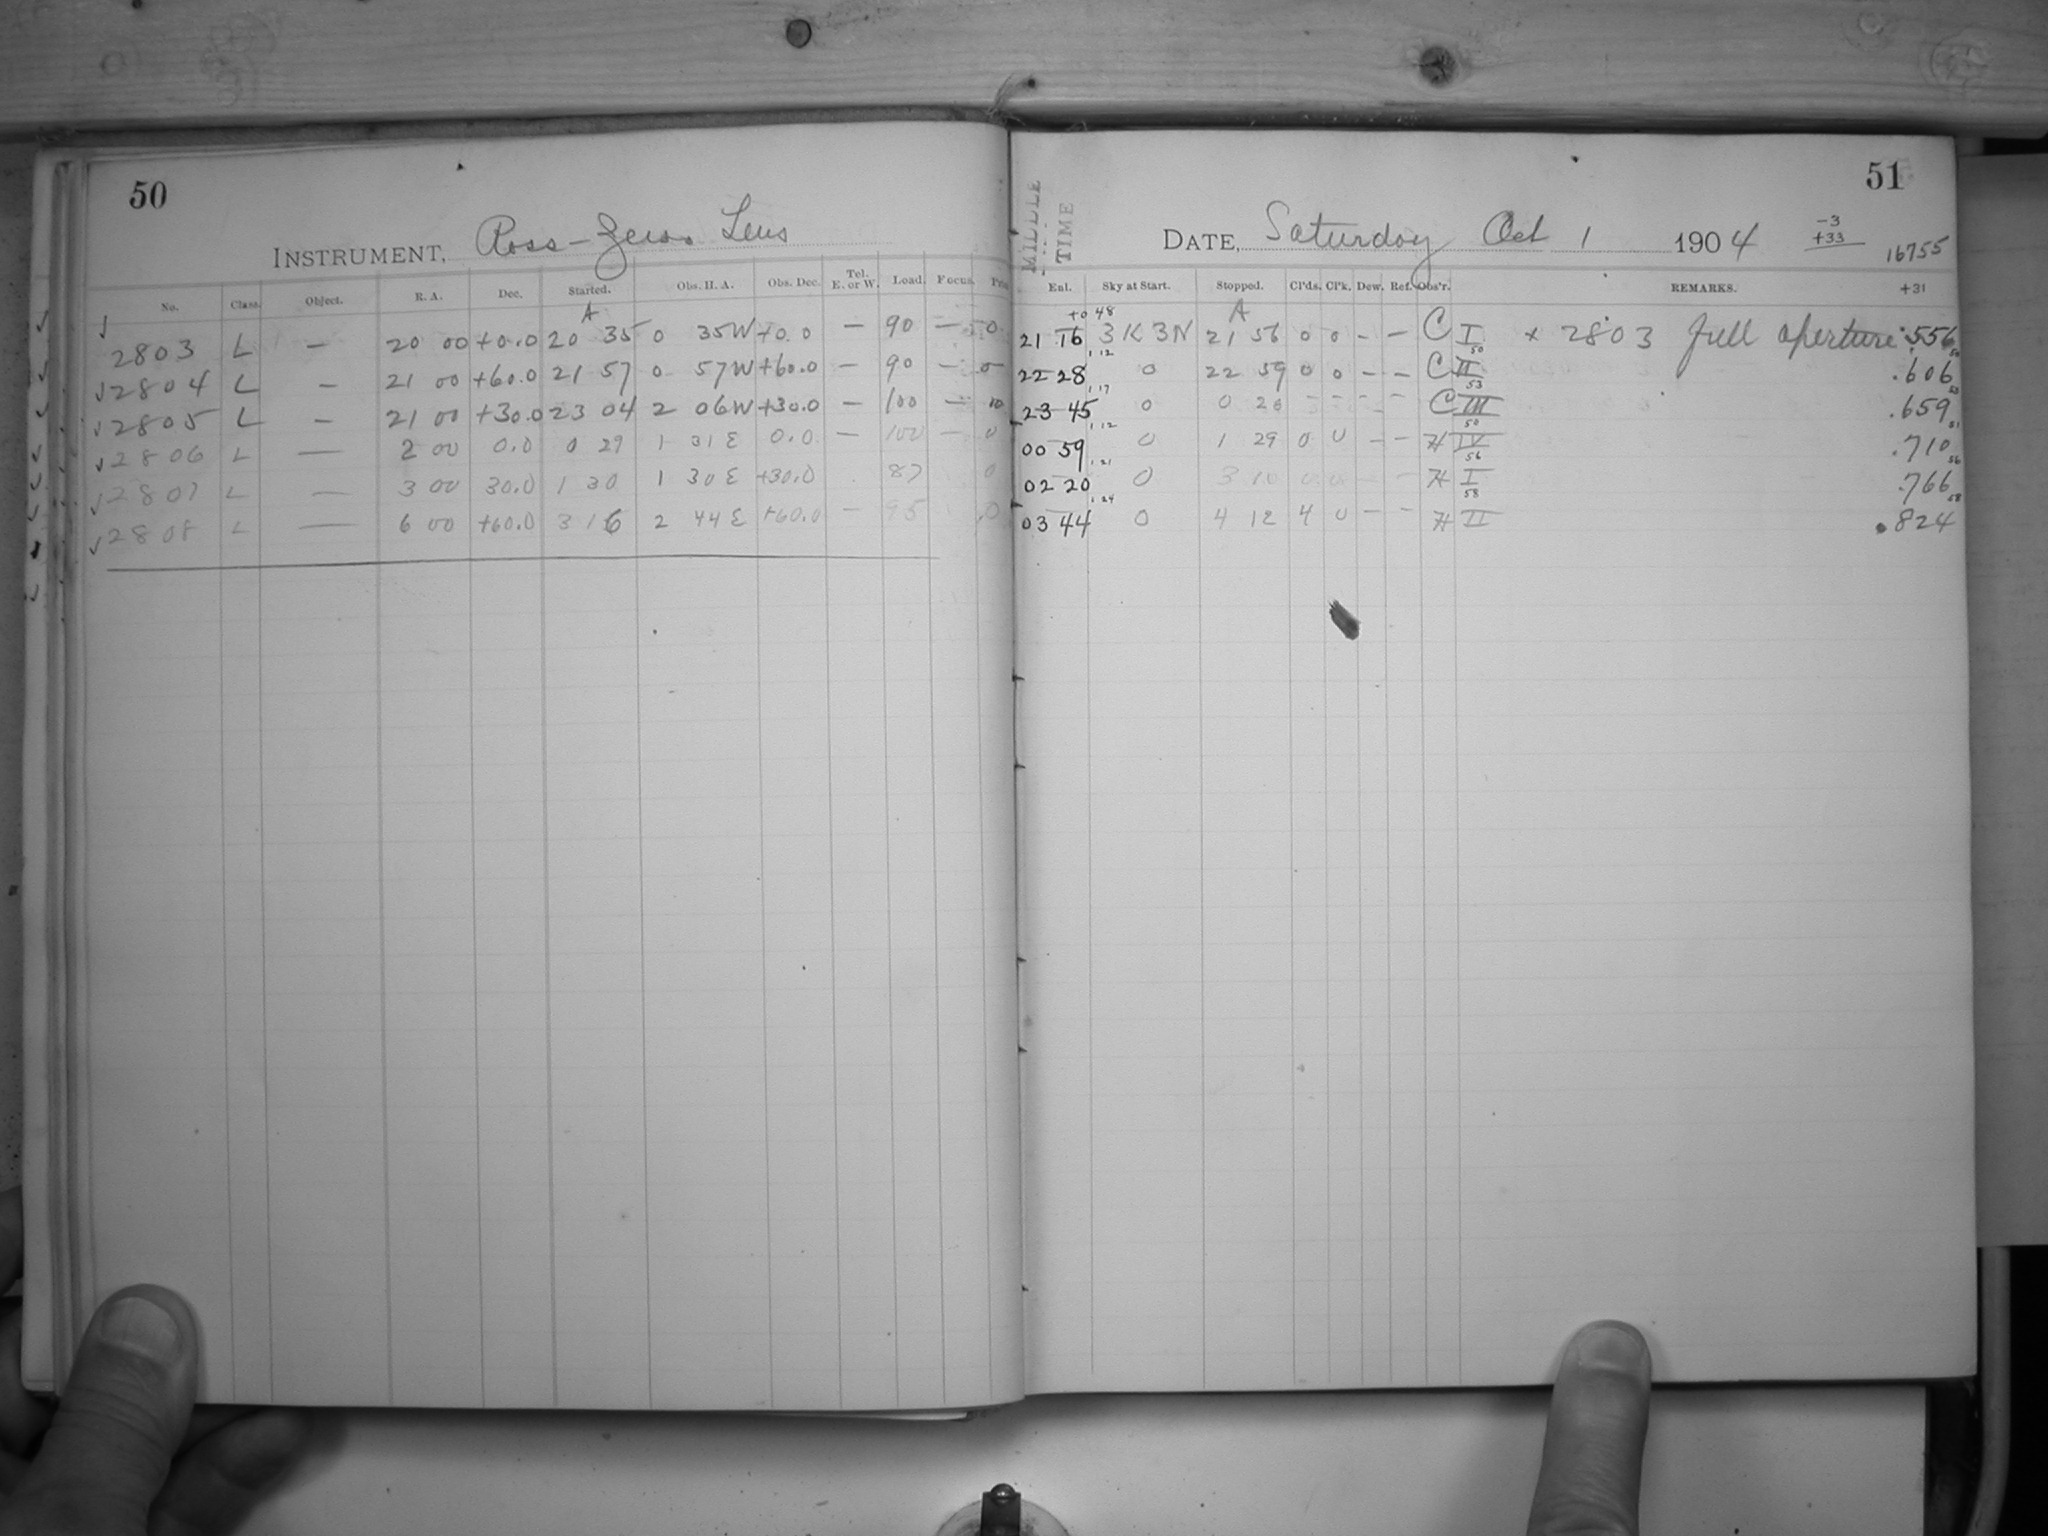 50
INSTRUMENT, Ross-Zeiss Lens
No. Class. Object. R. A. Dec. Started. Obs. H. A. Obs. Dec. Tel. E. or W. Load. Focus.
A
2803 L — 20 00 +0.0 20 35 0 35W +0.0 — 90 — 0
2804 L — 21 00 +60.0 21 57 0 57W +60.0 — 90 — 0
2805 L — 21 00 +30.0 23 04 2 06W +30.0 — 100 — 10
2806 L — 2 00 0.0 0 29 1 31E 0.0 — 100 — 0
2807 L — 3 00 30.0 1 30 1 30E +30.0 87 0
2808 L — 6 00 +60.0 3 16 2 44E +60.0 — 95 0
51
MIDDLE
TIME
DATE, Saturday Oct 1 1904
-3
+33
16755
Enl. Sky at Start. Stopped. Cl'ds. Cl'k. Dew. Ref. Obs'r. REMARKS. +31
+0 48 A
21 16 3K3N 21 56 0 0 - - C I x 2803 full aperture .556
1 12 50 50
22 28 0 22 59 0 0 - - C II .606
1 17 53 53
23 45 0 0 26 - - - - C III .659
1 12 50 51
00 59 0 1 29 0 0 - - H IV .710
1 21 56 56
02 20 0 3 10 0 0 - - H I .766
1 24 58 58
03 44 0 4 12 4 0 - - H II .824